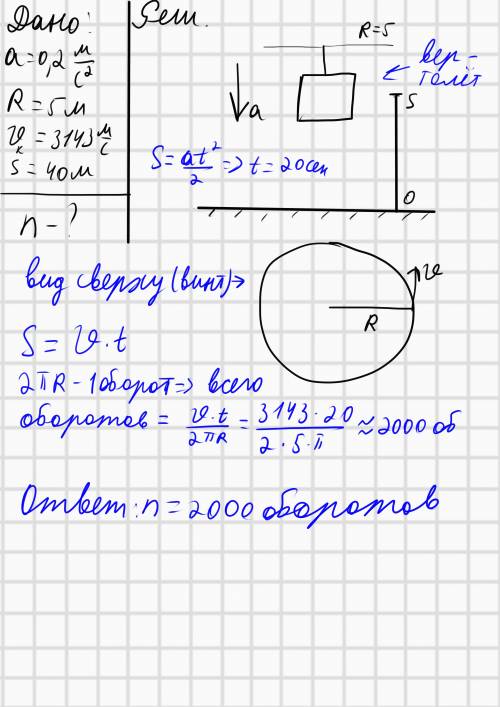 Дано:
a=0,2 м/с²
R=5м
υк=3143 м/с
S=40м
n-?
Реш.
R=5
вер-
толёт
a
S
O
S=at²/2 => t=20сек
вид сверху (винт)→
υ
R
S=υ·t
2πR-1оборот=> всего
оборотов = υ·t/2πR = 3143·20/2·5·π ≈2000 об
Ответ: n=2000 оборотов